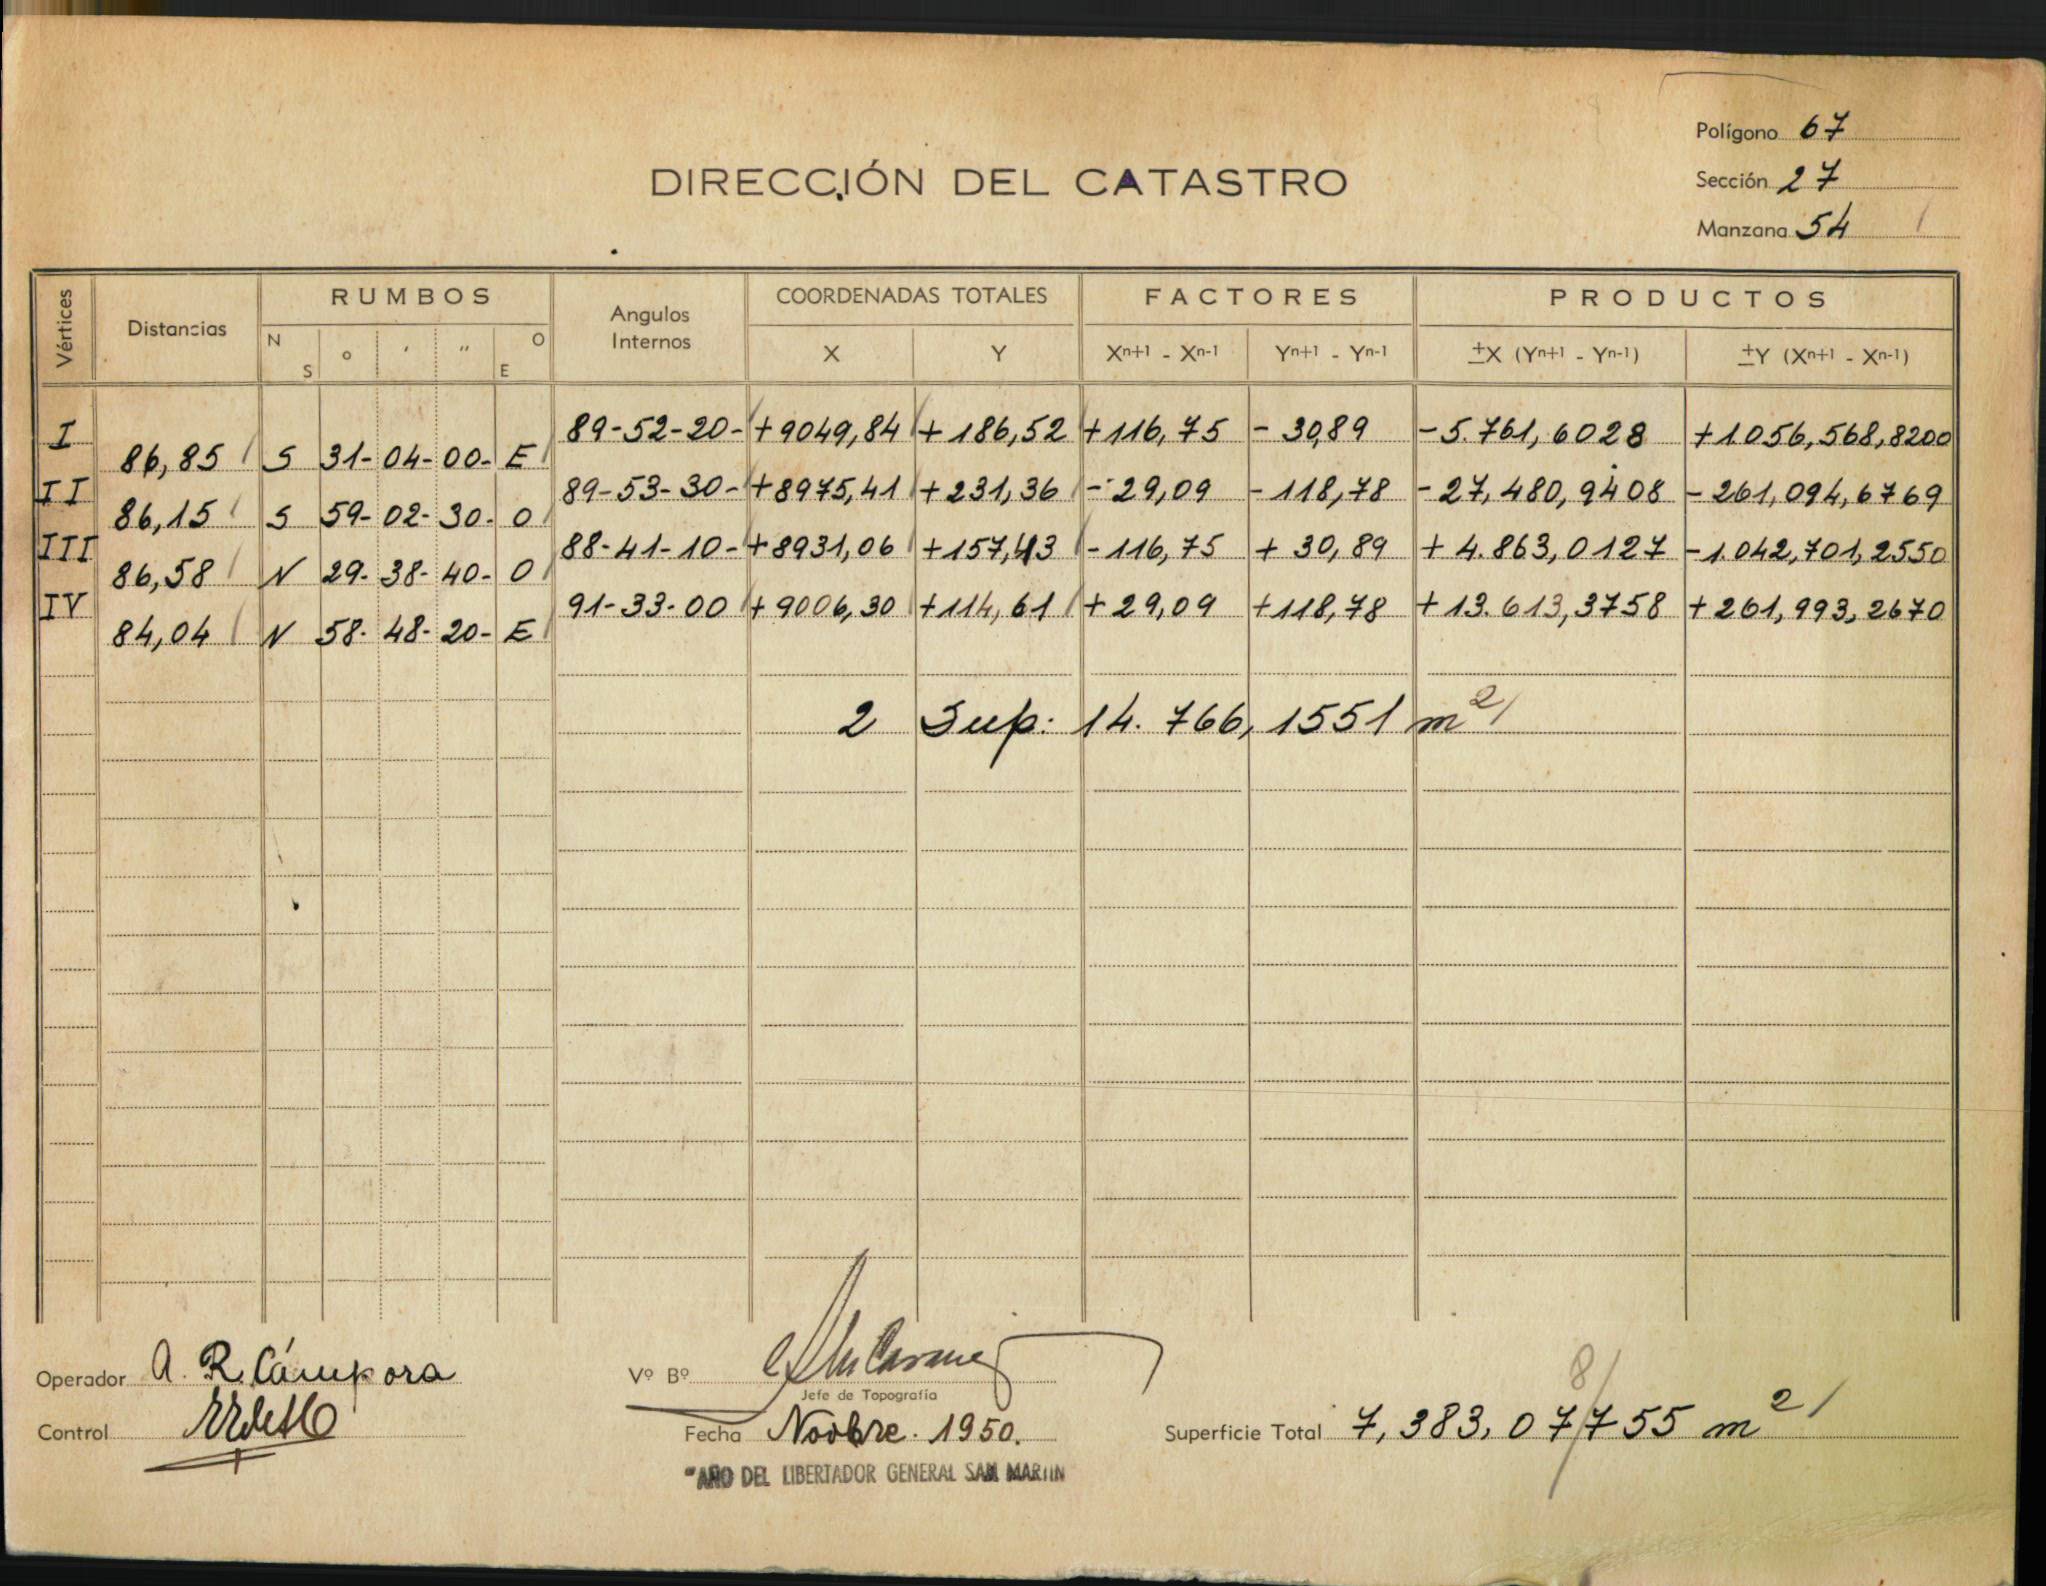 Polígono 67
DIRECCIÓN DEL CATASTRO
Sección 27
Manzana 54
Vértices Distancias RUMBOS Angulos Internos COORDENADAS TOTALES FACTORES PRODUCTOS
N S ° ' " O E X Y Xn+1 - Xn-1 Yn+1 - Yn-1 ±X (Yn+1 - Yn-1) ±Y (Xn+1 - Xn-1)
I 89-52-20- +9049,84 +186,52 +116,75 -30,89 -5.761,6028 +1056,568,8200
86,85 S 31- 04- 00- E
II 89-53-30- +8975,41 +231,36 -29,09 -118,78 -27,480,9408 -261,094,6769
86,15 S 59- 02- 30- O
III 88-41-10- +8931,06 +157,43 -116,75 +30,89 +4.863,0127 -1.042,701,2550
86,58 N 29- 38- 40- O
IV 91-33-00 +9006,30 +114,61 +29,09 +118,78 +13.613,3758 +261,993,2670
84,04 N 58- 48- 20- E
2 Sup: 14.766,1551 m2
Operador A. R. Cámpora
Vº Bº
Jefe de Topografía
8
Control
Fecha Novbre. 1950.
Superficie Total 7,383,07755 m2
"AÑO DEL LIBERTADOR GENERAL SAN MARTIN